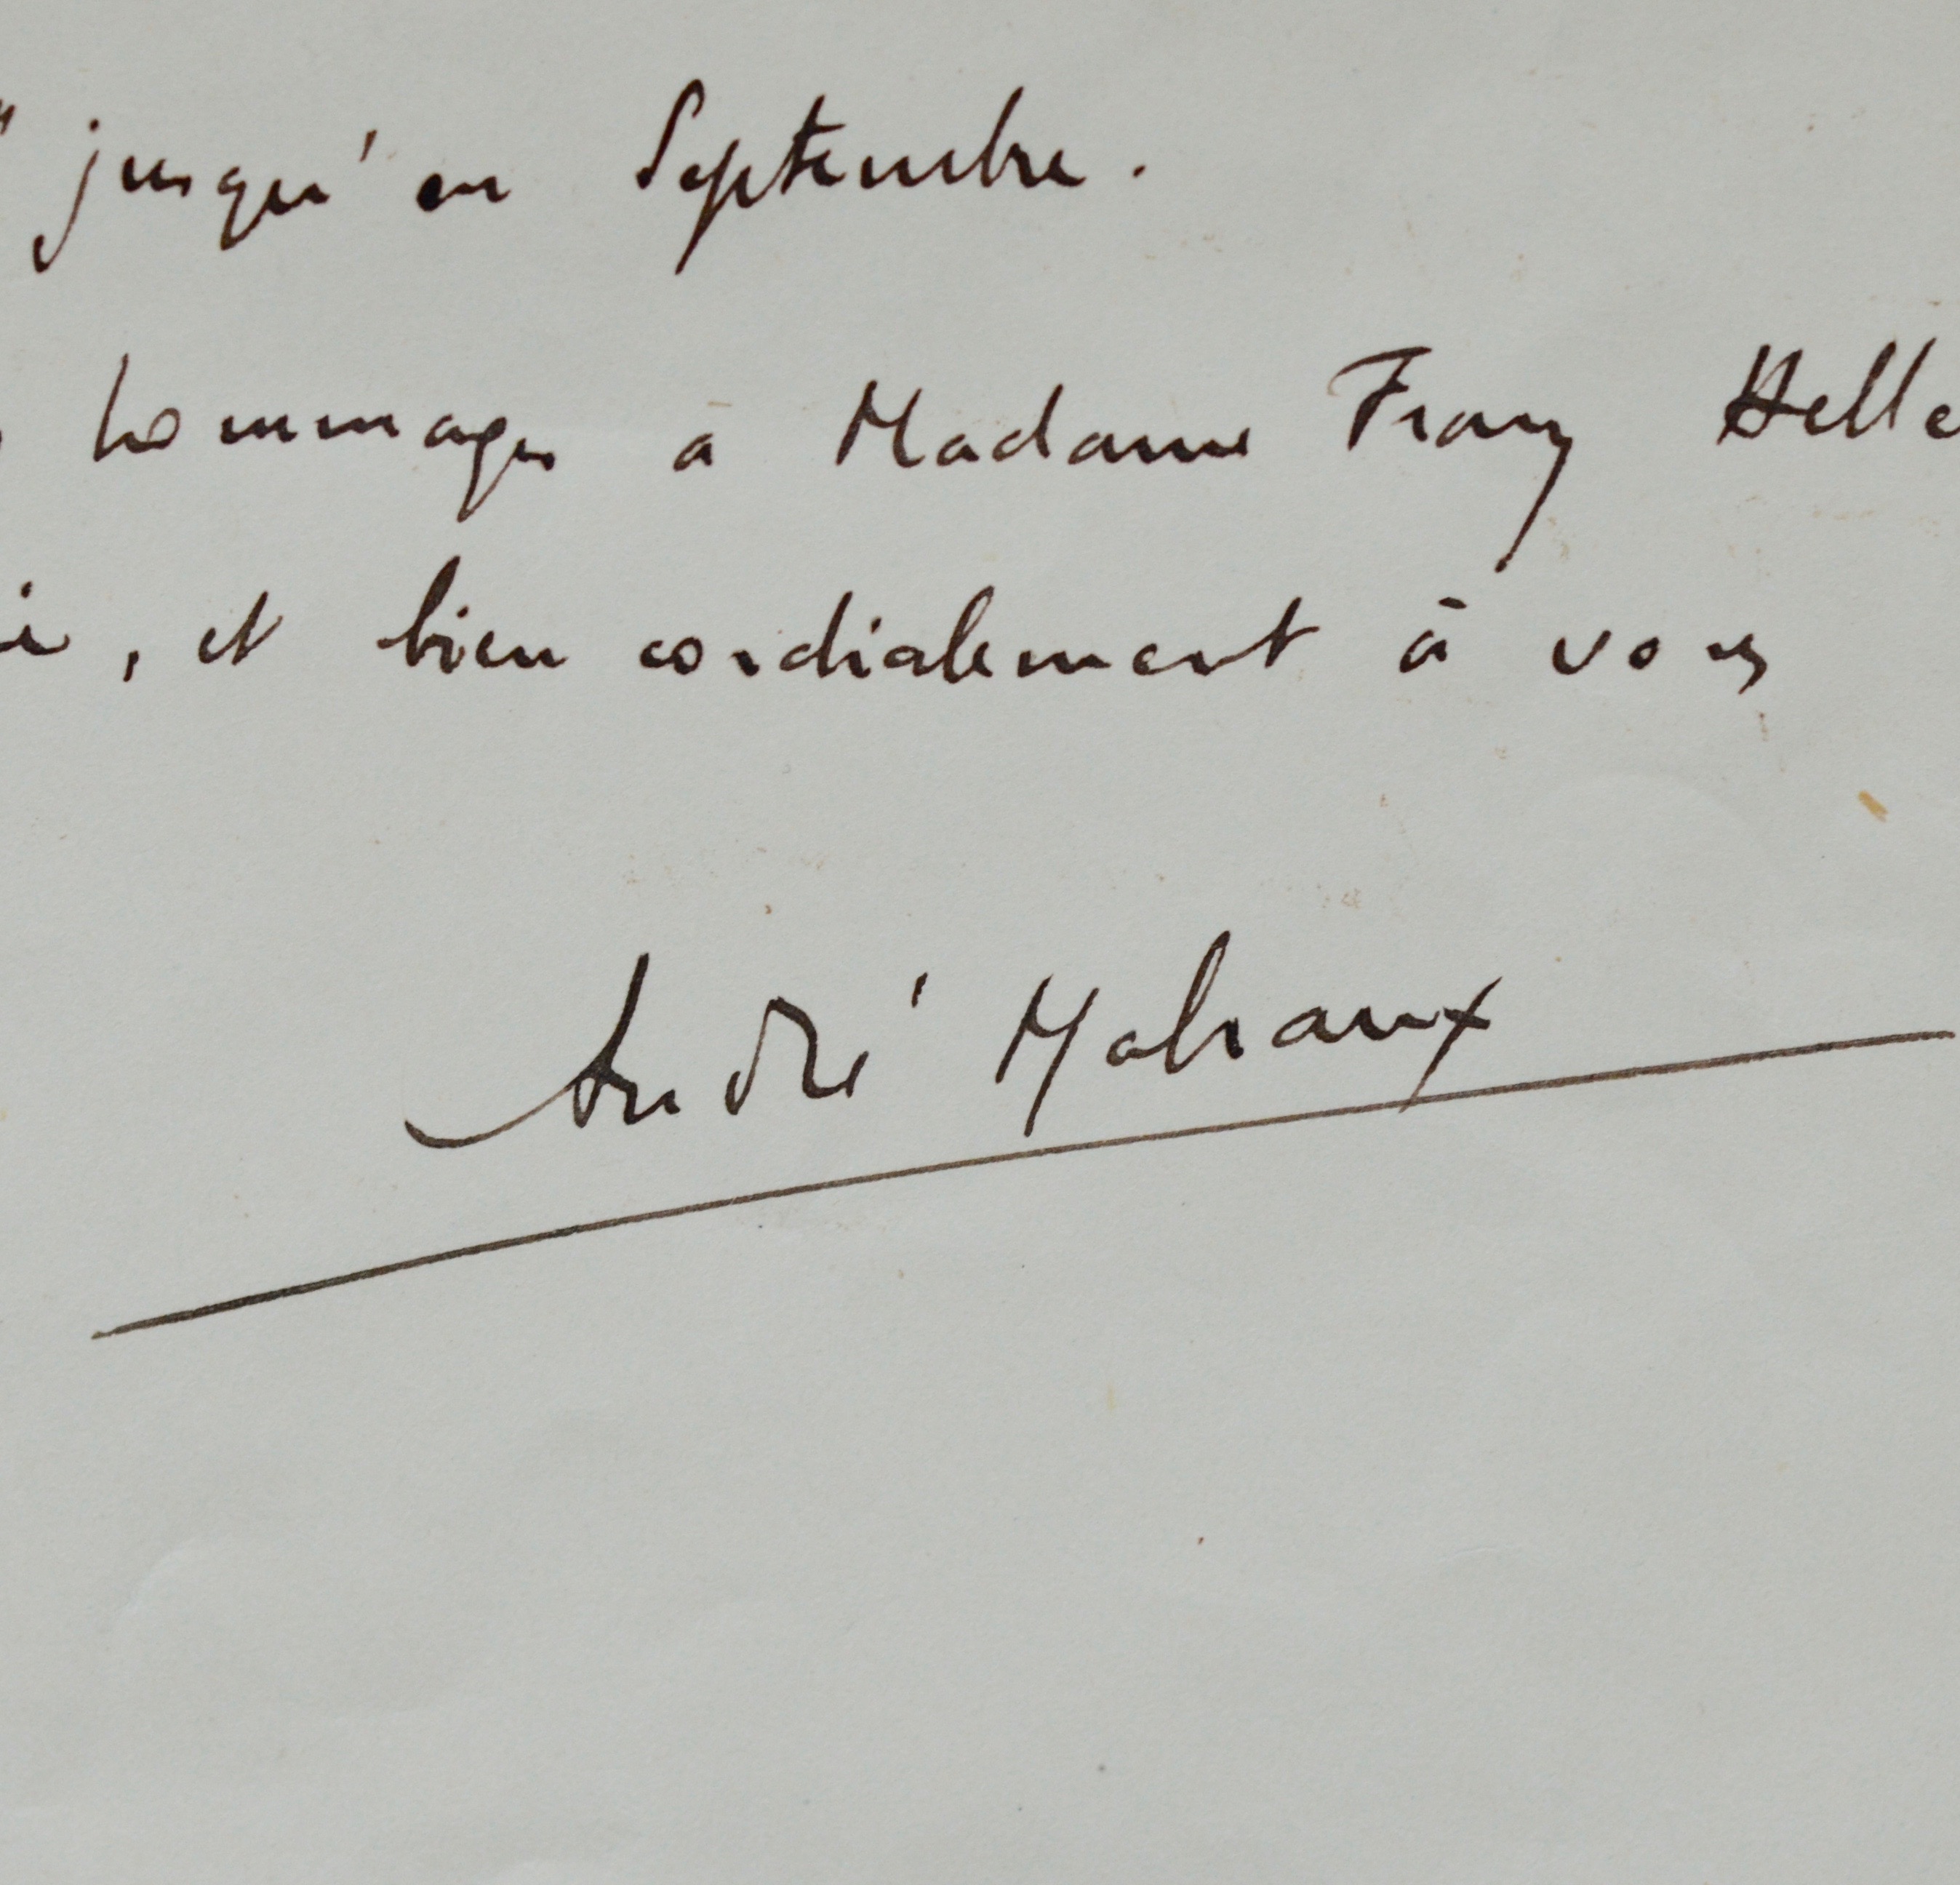 " jusqu'en Septembre.
hommages à Madame Franz Helle
, et bien cordialement à vous
André Malraux